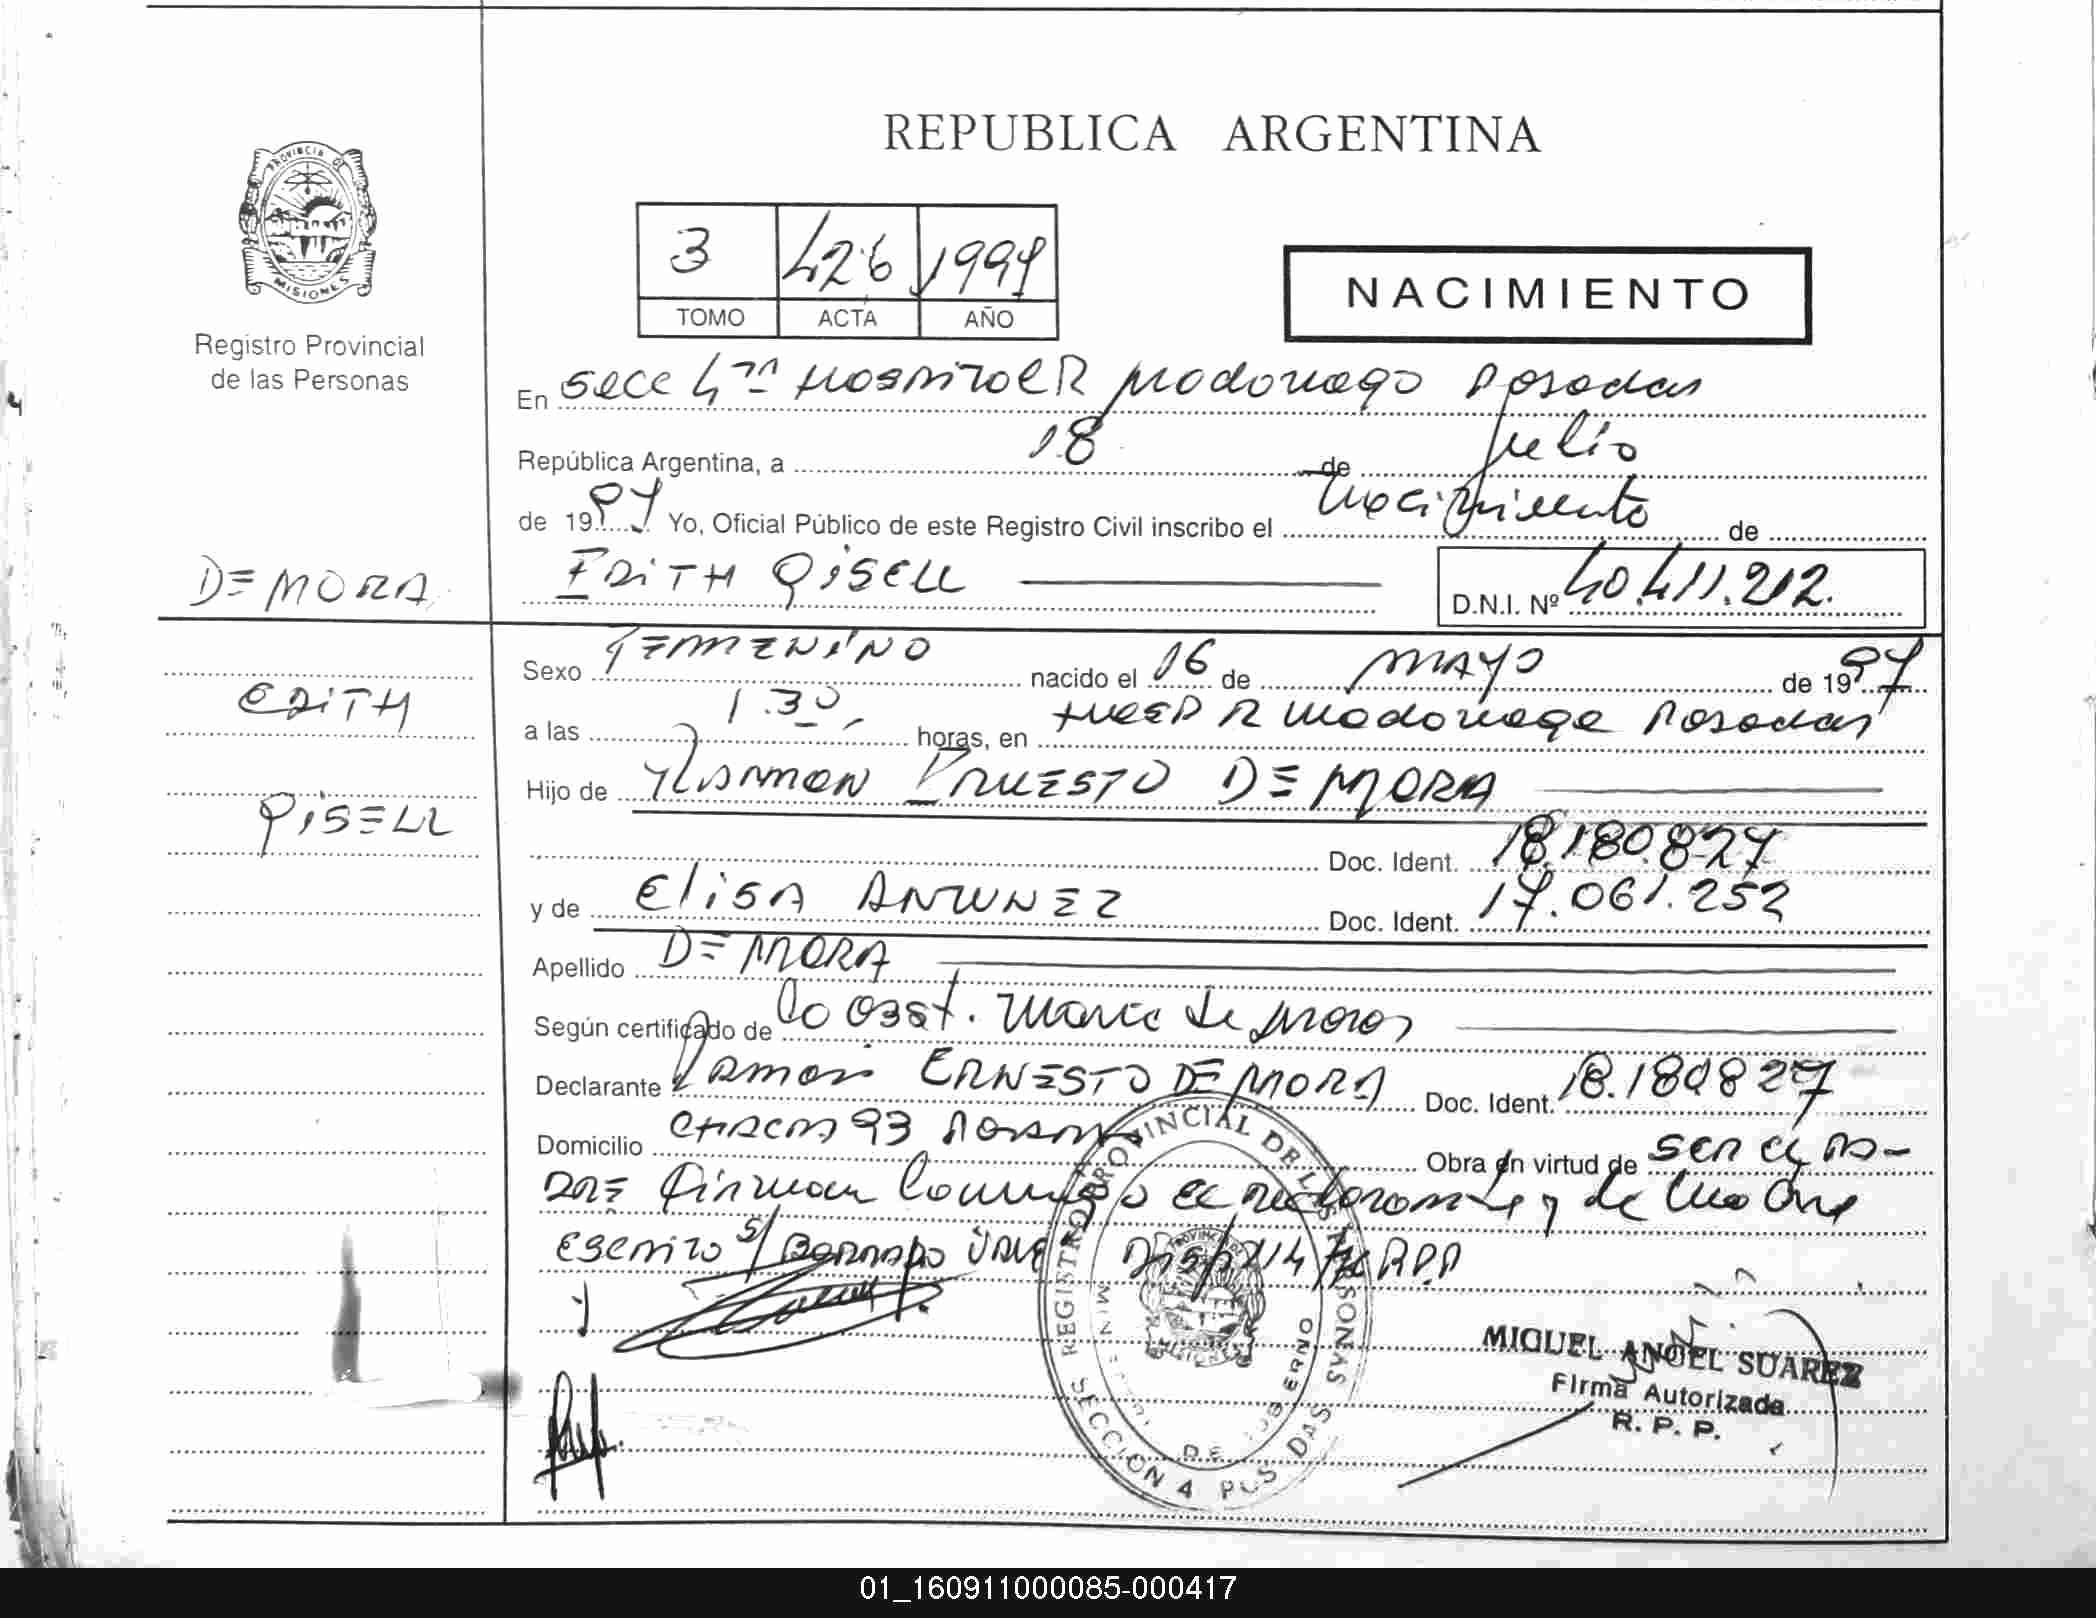 REPUBLICA ARGENTINA
PROVINCIA DE MISIONES
Registro Provincial
de las Personas
3 426 1997
TOMO ACTA AÑO
NACIMIENTO
En Secc 4ta Hospital R Madariaga Posadas
República Argentina, a 18 de Julio
de 1997 Yo, Oficial Público de este Registro Civil inscribo el Nacimiento de
DE MORA
EDITH GISELL
D.N.I. Nº 40.411.212.
Sexo FEMENINO nacido el 16 de MAYO de 1997
EDITH
a las 1.30 horas, en R Madariaga Posadas
GISELL
Hijo de Ramon ERNESTO DE MORA
Doc. Ident. 18.180.827
y de ELISA ANTUNEZ Doc. Ident. 17.061.252
Apellido DE MORA
Según certificado de la Obst.
Declarante Ramon ERNESTO DE MORA Doc. Ident. 18.180827
Domicilio CHACRA 93 Posadas Obra en virtud de ser el PA-
DRE Firman Conmigo el declarante y de la Madre
ESCRITO s/ BORRADO Disp 214 RPP
REGISTRO PROVINCIAL DE LAS PERSONAS
SECCION 4 POSADAS
MIGUEL ANGEL SUAREZ
Firma Autorizada
R. P. P.
01_160911000085-000417